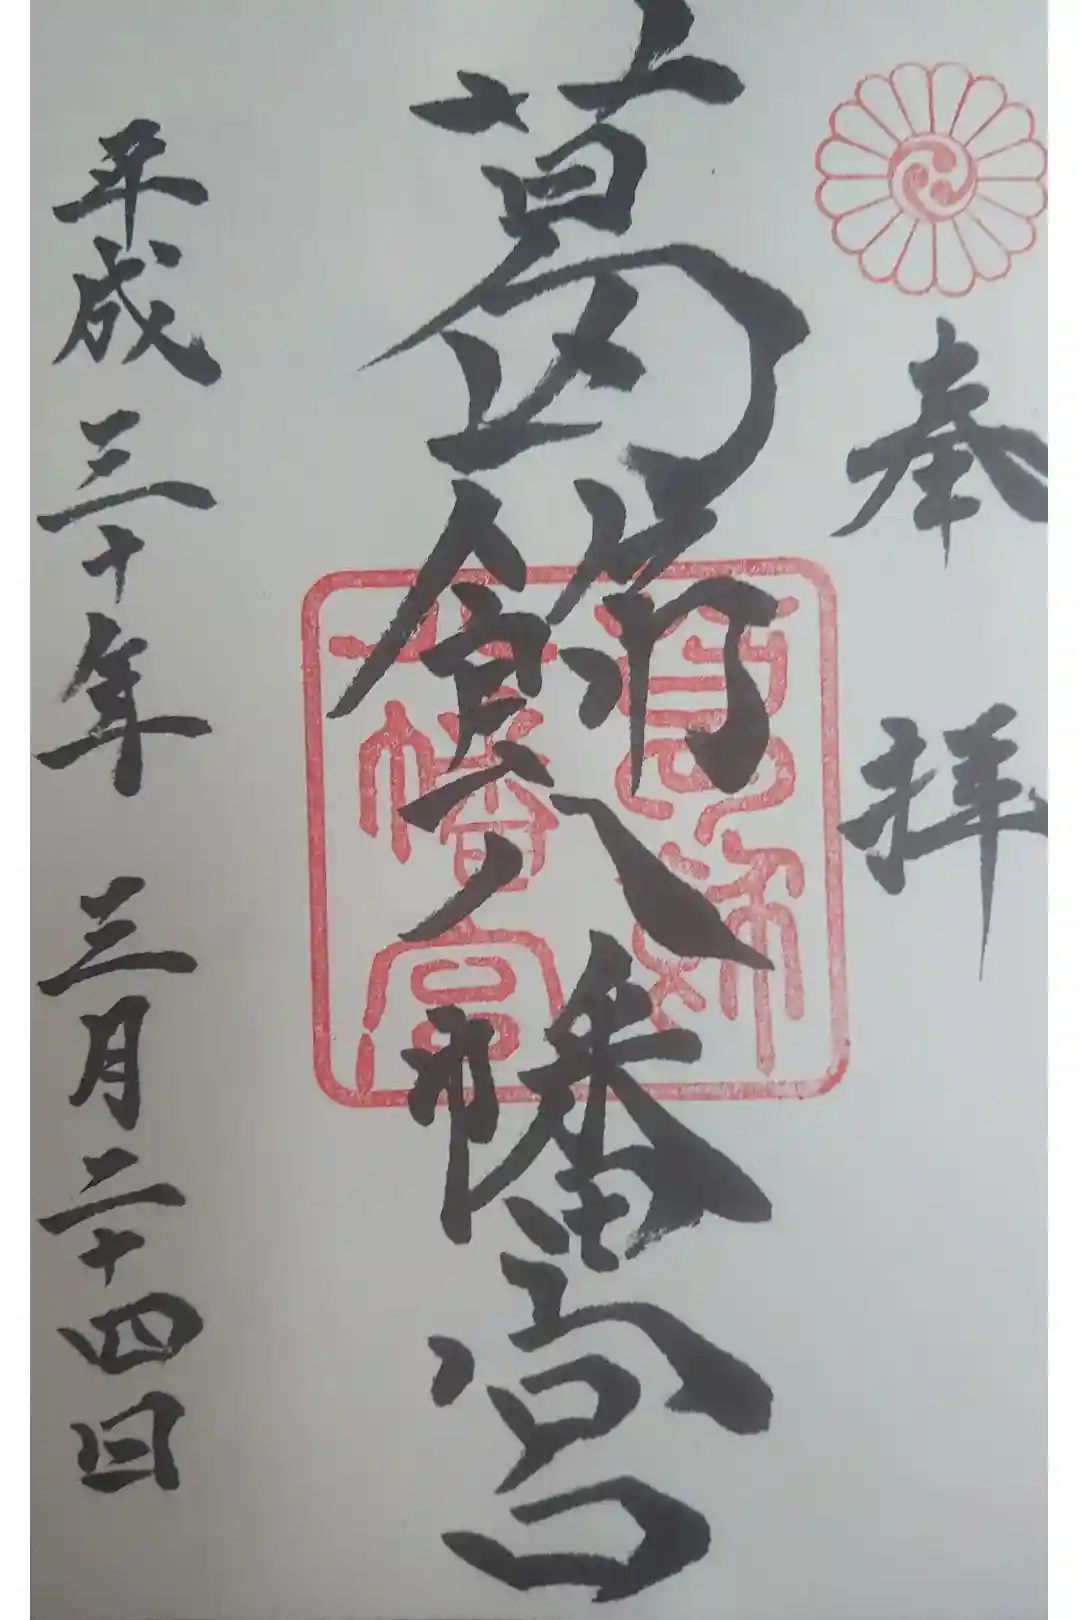 奉拝
葛飾八幡宮
葛飾
八幡宮
平成三十年 三月二十四日